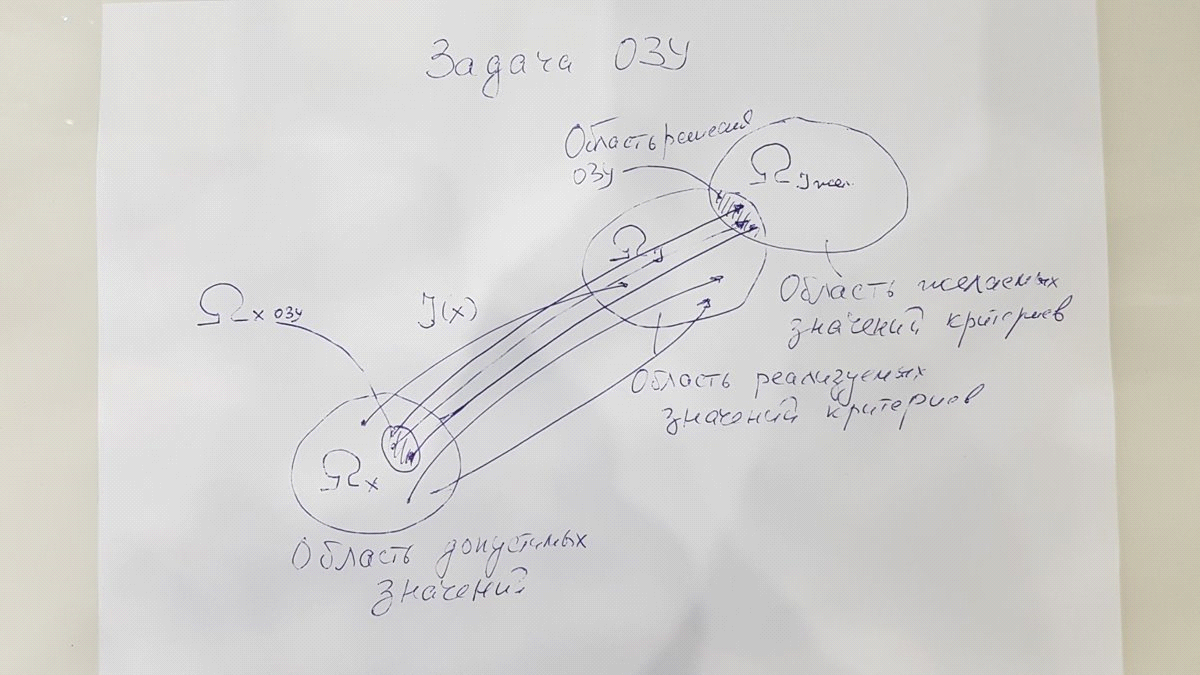 Задача ОЗУ
Область решения
ОЗУ
Ω J жел.
Ω J
Область желаемых
значений критериев
Ω x ОЗУ
J(x)
Область реализуемых
значений критериев
Ω x
Область допустимых
значений